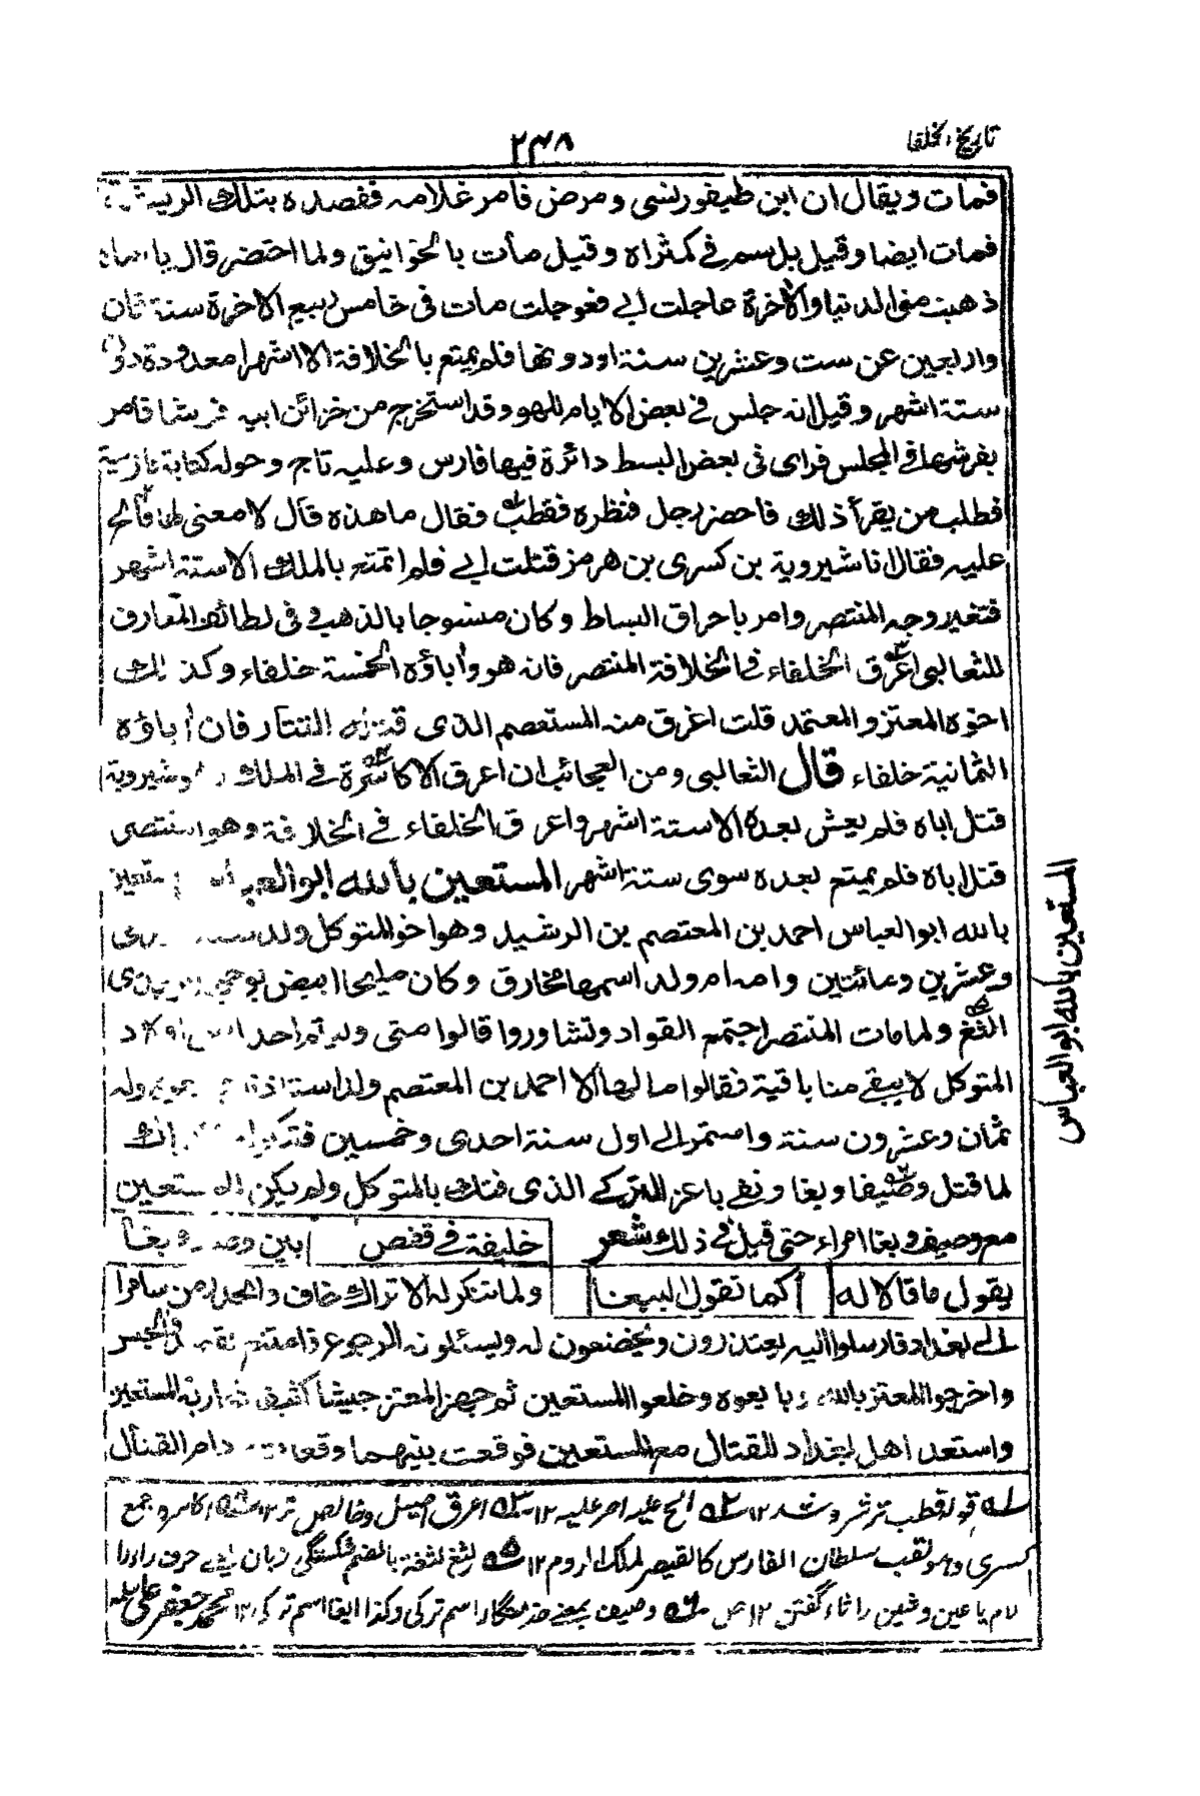 تاريخ الخلفا
٢٤٨
فمات ويقال ان ابن طيفور نسى ومرض فامر غلامه ففصده بتلك الريشة
فمات ايضا وقيل بل سم فى كمثراه وقيل مات بالخوانيق ولما احتضر قال يا اماه
ذهبت منى الدنيا والاخرة عاجلت ابى فعوجلت مات فى خامس ربيع الاخرة سنة ثمان
واربعين عن ست وعشرين سنة او دونها فلم يمتع بالخلافة الا اشهرا معدودة دون
ستة اشهر وقيل انه جلس فى بعض الايام للهو وقد استخرج من خزائن ابيه فرشا فامر
بفرشها فى المجلس فراى فى بعض البسط دائرة فيها فارس وعليه تاج وحوله كتابة فارسية
فطلب من يقرأ ذلك فاحضر رجل فنظره فقطب فقال ما هذه قال لا معنى لها فالح
عليه فقال انا شيروية بن كسرى بن هرمز قتلت ابى فلم اتمتع بالملك الا ستة اشهر
فتغير وجه المنتصر وامر باحراق البساط وكان منسوجا بالذهب وفى لطائف المعارف
للثعالبى اعرق الخلفاء فى الخلافة المنتصر فانه هو وأباؤه الخمسة خلفاء وكذلك
اخوه المعتز والمعتمد قلت اعرق منه المستعصم الذى قتله التتار فان أباؤه
الثمانية خلفاء قال الثعالبى ومن العجائب ان اعرق الاكاسرة فى الملك وهو شيروية
قتل اباه فلم يعش بعده الا ستة اشهر واعرق الخلفاء فى الخلافة وهو المنتصر
قتل اباه فلم يمتع بعده سوى ستة اشهر المستعين بالله ابو العباس المستعين
بالله ابو العباس احمد بن المعتصم بن الرشيد وهو اخو المتوكل ولد سنة احدى
وعشرين ومائتين وامه ام ولد اسمها مخارق وكان مليحا ابيض بوجهه اثر جدرى
الثغ ولما مات المنتصر اجتمع القواد وتشاوروا قالوا متى وليتم احدا من اولاد
المتوكل لا يبقى منا باقية فقالوا ما لها الا احمد بن المعتصم ولد استاذنا فبايعوه وله
ثمان وعشرون سنة واستمر الى اول سنة احدى وخمسين فتنكر له الاتراك
لما قتل وصيفا وبغا ونفى باغر التركى الذى فتك بالمتوكل ولم يكن للمستعين
مع وصيف وبغا امراء حتى قيل فى ذلك شعر خليفة فى قفص بين وصيف وبغا
يقول ما قالا له كما تقول الببغا ولما تنكر له الاتراك خاف وانحدر من سامرا
الى بغداد فارسلوا اليه يعتذرون ويخضعون له ويسئلونه الرجوع فامتنع فقصدوا الحبس
واخرجوا المعتز بالله وبايعوه وخلعوا المستعين ثم جهز المعتز جيشا كثيفا لمحاربة المستعين
واستعد اهل بغداد للقتال مع المستعين فوقعت بينهما وقعات ودام القتال
المستعين بالله ابو العباس
له قوله قطب ترشرو شد ١٢ الح عليه اصر عليه ١٢ اعرق اصيل وخالص تر ١٢ اكاسره جمع
كسرى وهو لقب سلطان الفارس كالقيصر لملك الروم ١٢ لثغ لثغة بالضم شكستگى زبان يعنى حرف را را
لام يا عين وسين را ثاء گفتن ١٢ص وصيف بمعنى خدمتگار اسم تركى وكذا ايضا اسم تركى ١٢ محمد جعفر على